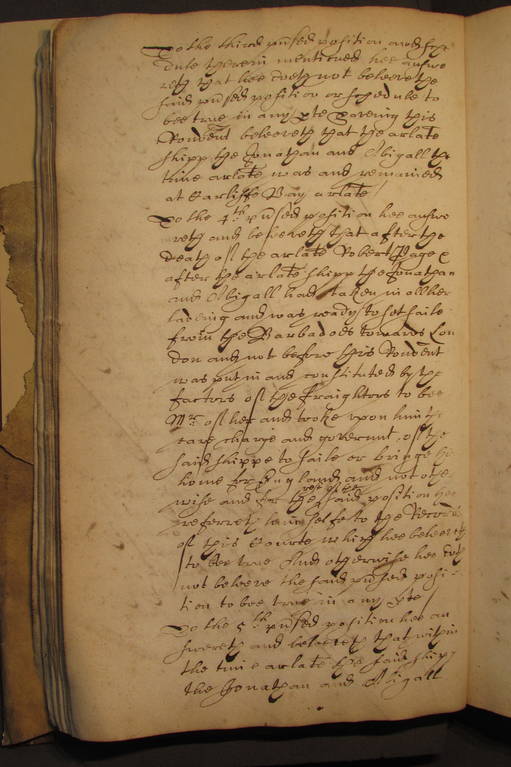 To the third pnsed position and sche
dule therein mentioned hee answe
reth that hee doeth not beleeve the
said pnsed position or schedule to
bee true in any pte Saveing this
Rondent beleeveth that the arlate
shipp the Jonathan and Abigall the
time arlate was and remained
at Carliffe Bay arlate
To the 4th pnsed position hee answe
reth and beleeveth that after the
death of the arlate Robert Page &
after the arlate shipp the Jonathan
and Abigall had taken in all her
ladeing and was ready to sett saile
from the Barbadoes towards Lon
don and not before this Rondent
was put in and constituted by the
factors of the fraighters to bee
Mr of her and tooke upon him the
care charge and governmt of the
said shippe to saile or bringe her
home for England and not othe
wise and for the rest of the said position hee
referreth himselfe to the Records
of this Courte which hee beleeveth
to bee true And otherwise hee doth
not beleeve the said pnsed posi
tion to bee true in any pte
To the 5th pnsed position hee an
swereth and beleeveth that within
the time arlate the said shipp
the Jonathan and Abigall